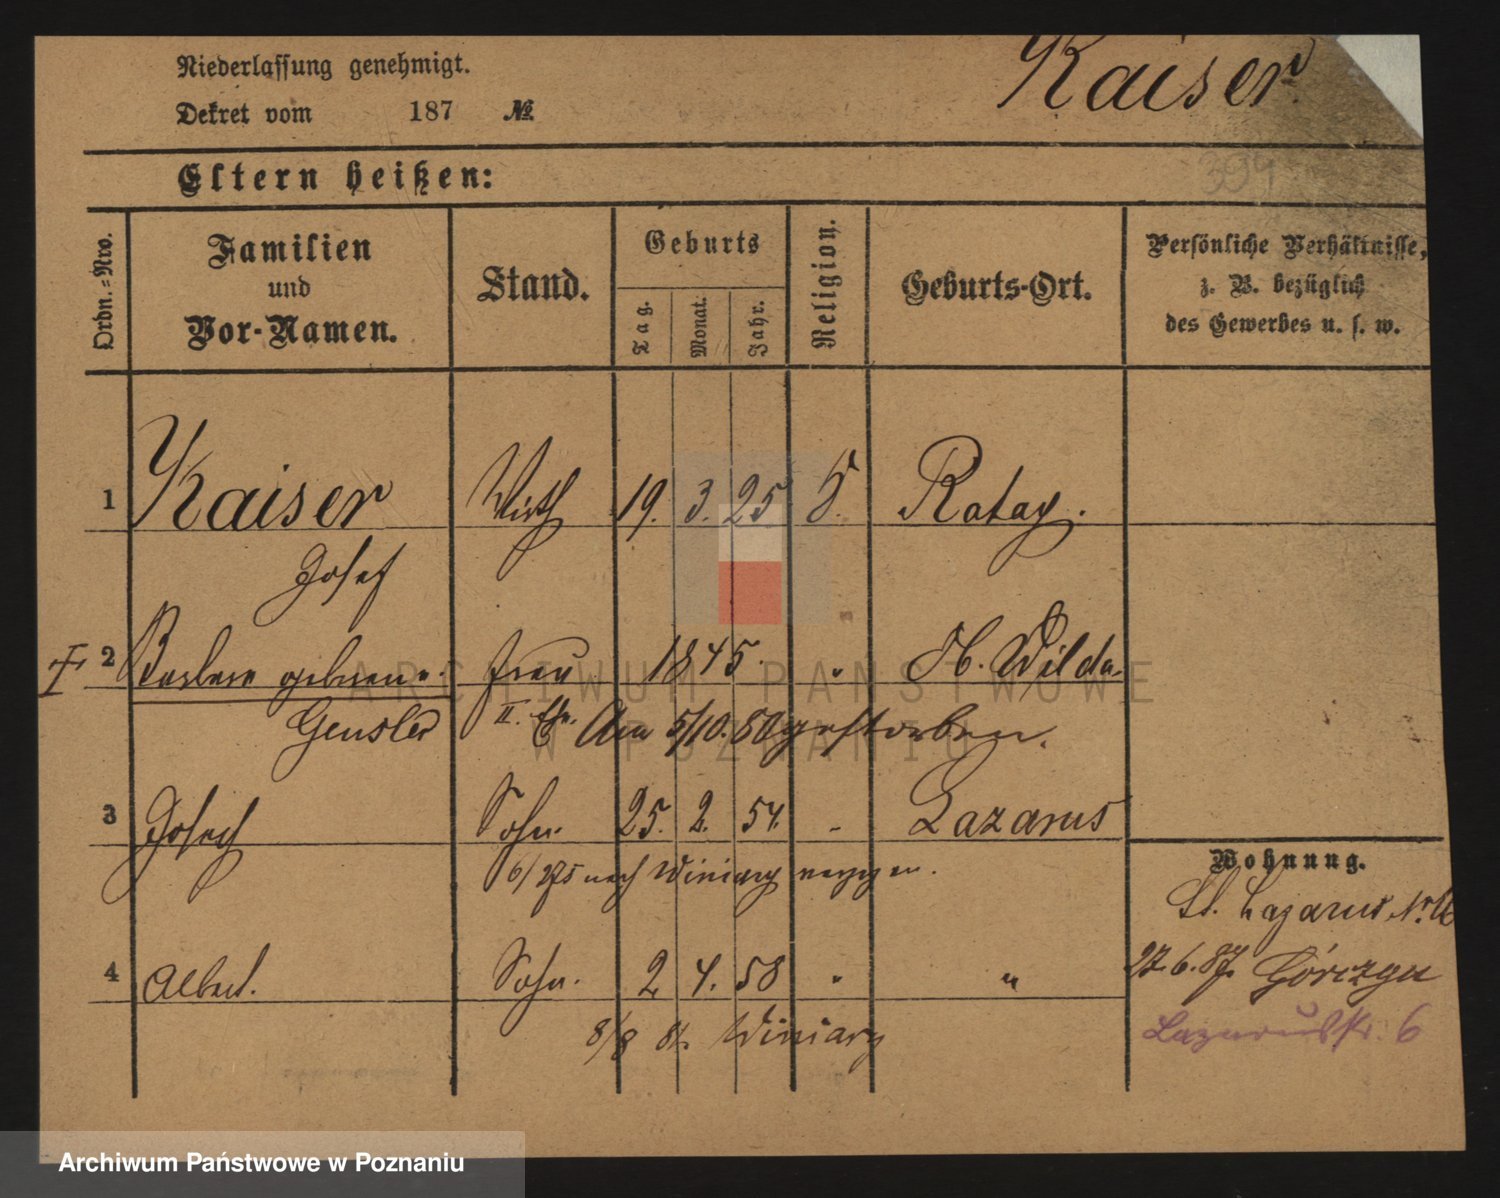 Niederlassung genehmigt.
Kaiser.
Dekret vom 187 №
Eltern heißen:
394
Ordn.=Nro.
Familien
und
Vor-Namen.
Stand.
Geburts
Tag.
Monat.
Jahr.
Religion.
Geburts-Ort.
Persönliche Verhältnisse,
z. B. bezüglich
des Gewerbes u. s. w.
1 Kaiser Wirth 19. 3. 25 Ratay.
Josef
2 Barbara geborene Frau 1845. " St. Wilda
Gensler II. Am 5/10. 80 gestorben.
3 Joseph Sohn. 25. 2. 54. " Lazarus
nach Winiary verzogen.
Wohnung.
St. Lazarus Nr.
4 Albert. Sohn. 2. 4. 58 " "
27.6.87. Górczyn
8/8 Winiary
Lazarusstr. 6
ARCHIWUM PAŃSTWOWE
W POZNANIU
Archiwum Państwowe w Poznaniu